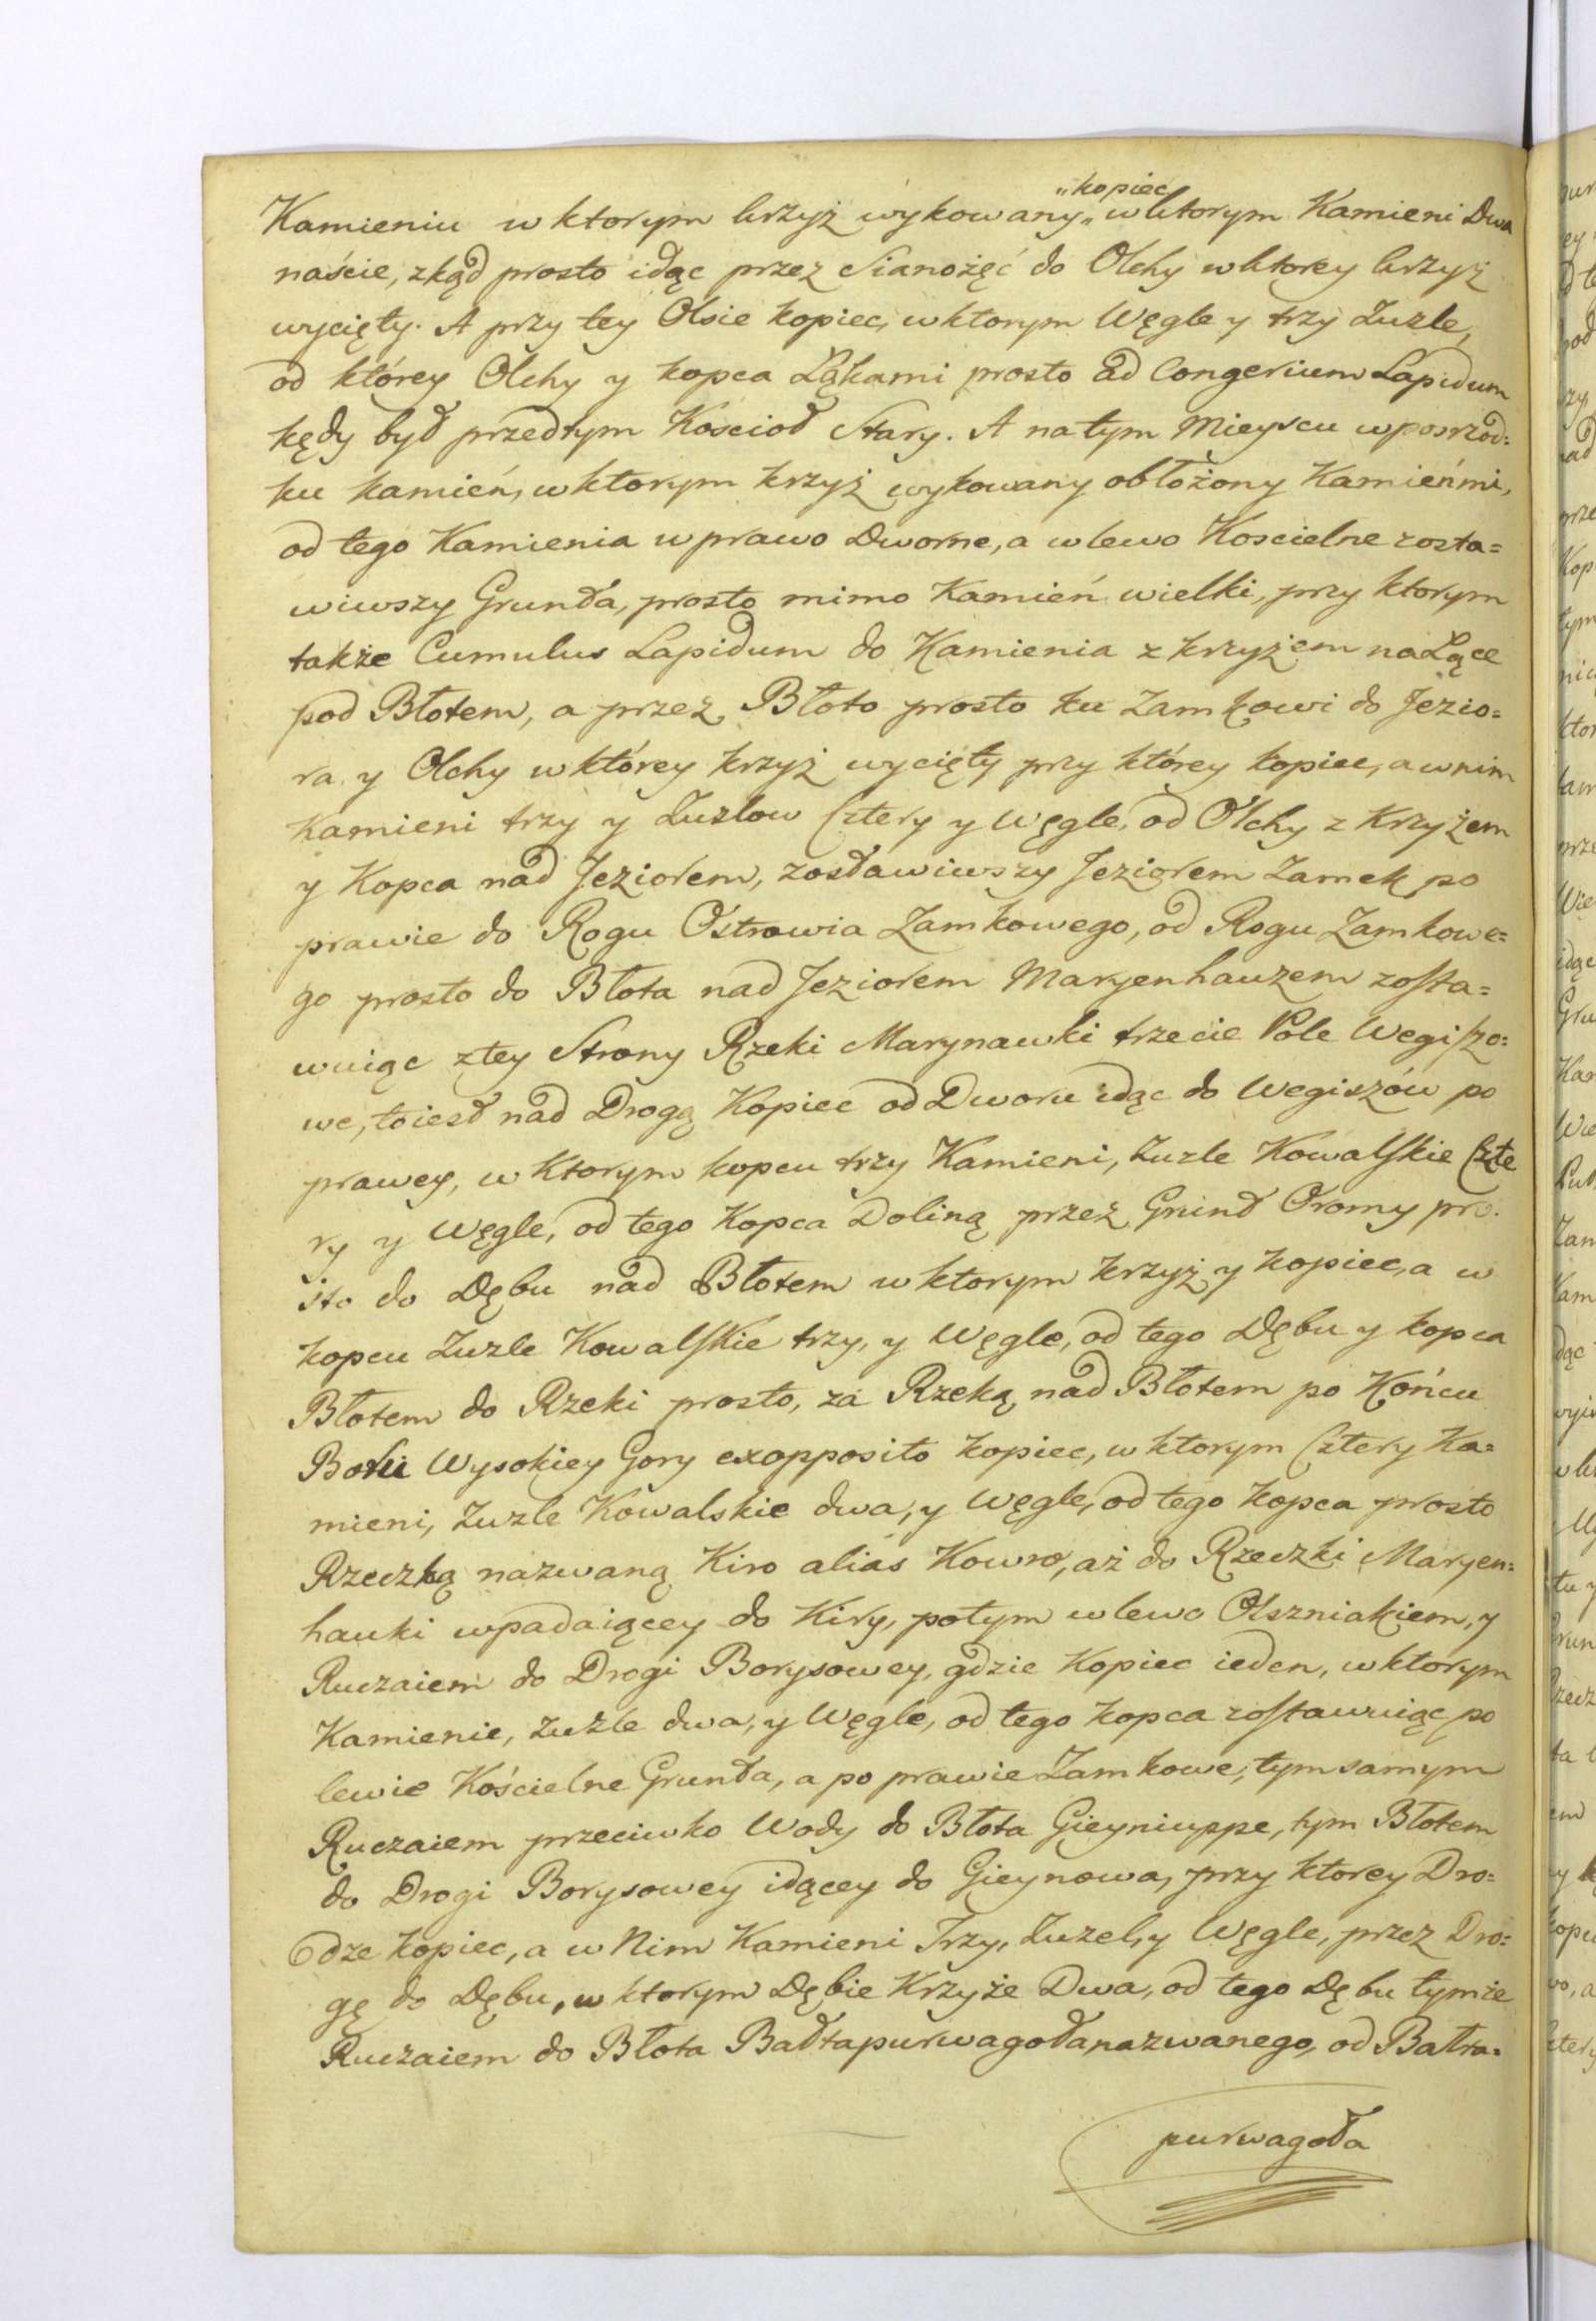 Kamieniu w ktorym krzyż wykowany „kopiec„ w ktorym Kamieni Dwa
naście, zkąd prosto idąc przez Sianożęć do Olchy w ktorey krzyż
wycięty. A przy tey Olsie kopiec, w ktorym Węgle y trzy Zuzle,
od którey Olchy y kopca Łąkami prosto ad Congerium Lapidum
kędy był przedtym Koscioł Stary. A na tym Mieyscu w posrzod=
ku kamień, w ktorym krzyż wykowany obłożony Kamieńmi,
od tego Kamienia w prawo Dworne, a w lewo Koscielne zosta=
wiwszy Grunta, prosto mimo Kamień wielki, przy ktorym
także Cumulus Lapidum do Kamienia z krzyżem na Łące
pod Błotem, a przez Błoto prosto ku Zamkowi do Jezio=
ra y Olchy w którey krzyż wycięty przy którey kopiec, a w nim
Kamieni trzy y Zuzlow Cztery y Węgle, od Olchy z Krzyżem
y Kopca nad Jeziorem, zostawiwszy Jeziorem Zamek po
prawie do Rogu Ostrowia Zamkowego, od Rogu Zamkowe=
go prosto do Błota nad Jeziorem Maryenhauzem zosta=
wuiąc z tey Strony Rzeki Marynawki trzecie Pole Wegiszo=
we, to iest nad Drogą Kopiec od Dworu idąc do Wegiszów po
prawey, w Ktorym kopcu trzy Kamieni, Zuzle Kowalskie Czte
ry y Węgle, od tego Kopca Doliną przez Grunt Oromy pro=
sto do Dębu nad Błotem w ktorym krzyż y kopiec, a w
kopcu Zuzle Kowalskie trzy, y Węgle, od tego Dębu y kopca
Błotem do Rzeki prosto, za Rzeką nad Błotem po Końcu
Wysokiey Gory exopposito kopiec, w ktorym Cztery Ka=
mieni, Zuzle Kowalskie dwa, y Węgle, od tego kopca prosto
Rzeczką nazwaną Kiro alias Kowro, aż do Rzeczki Maryen=
hauki wpadaiącey do Kiry, potym w lewo Olszniakiem, y
Ruczaiem do Drogi Borysowey, gdzie Kopiec ieden, w ktorym
Kamienie, Zuzle dwa, y Węgle, od tego kopca zostawuiąc po
lewie Kościelne Grunta, a po prawie Zamkowe, tym samym
Ruczaiem przeciwko Wody do Błota Gieyniuppe, tym Błotem
do Drogi Borysowey idącey do Gieynowa, przy ktorey Dro=
dze kopiec, a w Nim Kamieni Trzy, Zuzel, y Węgle, przez Dro=
gę do Dębu, w ktorym Dębie Krzyże Dwa, od tego Dębu tymże
Ruczaiem do Błota Bałtapurwagoła nazwanego, od Bałta=
purwagoła